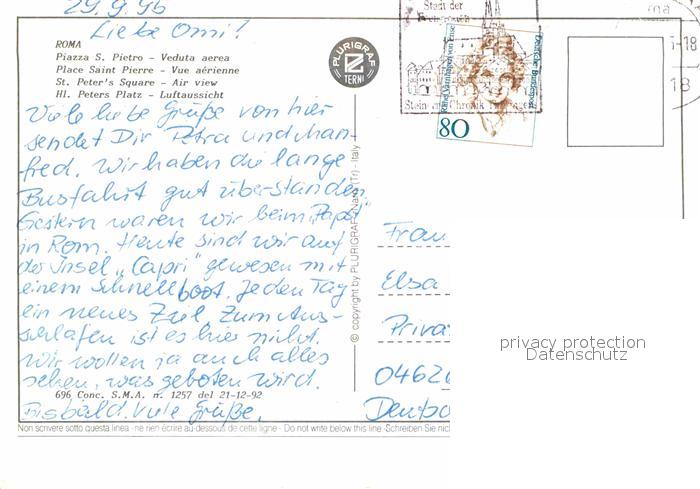 29.9.96
Liebe Omi!
ROMA
Piazza S. Pietro - Veduta aerea
Place Saint Pierre - Vue aérienne
St. Peter's Square - Air view
Hl. Peters Platz - Luftaussicht
Viele liebe Grüße von hier
sendet Dir Petra und Man-
fred. Wir haben die lange
Busfahrt gut überstanden.
Gestern waren wir beim „Papst"
in Rom. Heute sind wir auf
der Insel „Capri" gewesen mit
einem Schnellboot. Jeden Tag
ein neues Ziel. Zum Aus-
schlafen ist es hier nicht.
Wir wollen ja auch alles
sehen, was geboten wird.
Bis bald. Viele Grüße.
696 Conc. S.M.A. n. 1257 del 21-12-92
Non scrivere sotto questa linea - ne rien écrire au-dessous de cette ligne - Do not write below this line - Schreiben Sie nic
PLURIGRAF
TERNI
© copyright by PLURIGRAF - Narni (Tr) - Italy
Stadt der
Stein Chronik
80
Deutsche Bundespost
-18
18
Frau
Elsa
Priva
0462
Deutsc
privacy protection
Datenschutz